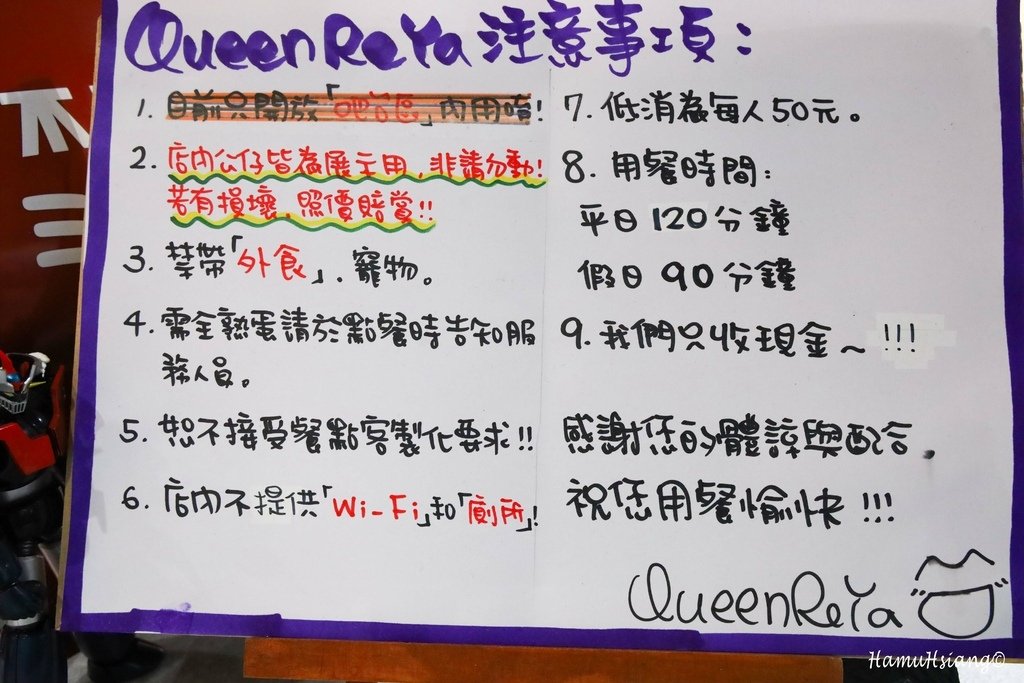 QueenReYa 注意事項：
1. 目前只開放「吧台區」內用唷!
2. 店內公仔皆為展示用，非請勿動!
若有損壞，照價賠賞!!
3. 禁帶「外食」、寵物。
4. 需全熟蛋請於點餐時告知服
務人員。
5. 恕不接受餐點客製化要求!!
6. 店內不提供「Wi-Fi」和「廁所」!
7. 低消為每人50元。
8. 用餐時間:
平日 120分鐘
假日 90分鐘
9. 我們只收現金~ !!!
感謝您的體諒與配合.
祝您用餐愉快!!!
QueenReYa
HamuHsiang©